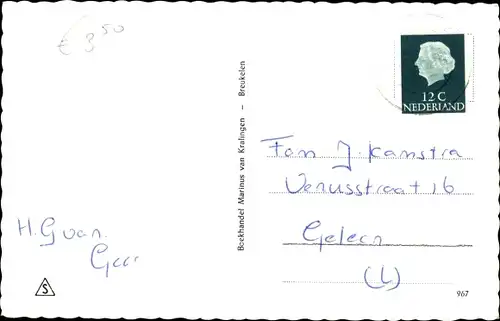 € 3,50
12 C
NEDERLAND
Boekhandel Marinus van Kralingen - Breukelen
Fam J. Kamstra
Venusstraat 16
Geleen
(L)
H. G van
Geer
S
967